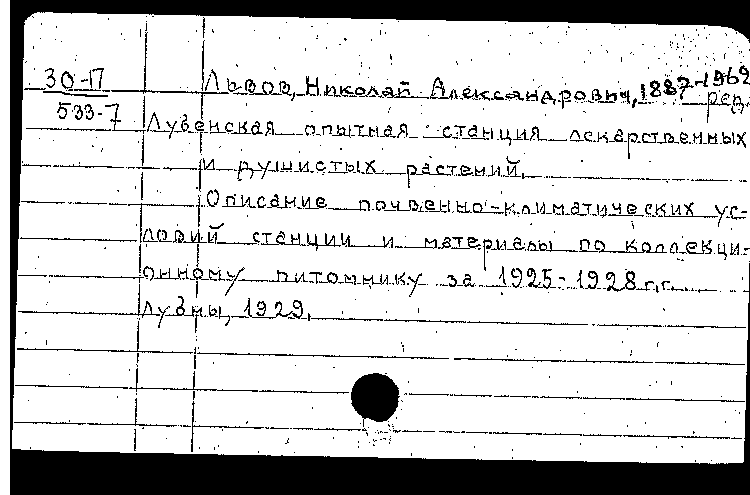 30-П
533-7
Львов, Николай Александрович, 1887-1962
ред.
Лубенская опытная станция лекарственных
и душистых растений.
Описание почвенно-климатических ус-
ловий станции и материалы по коллекци-
онному питомнику за 1925-1928 г.г.
Лубны, 1929.